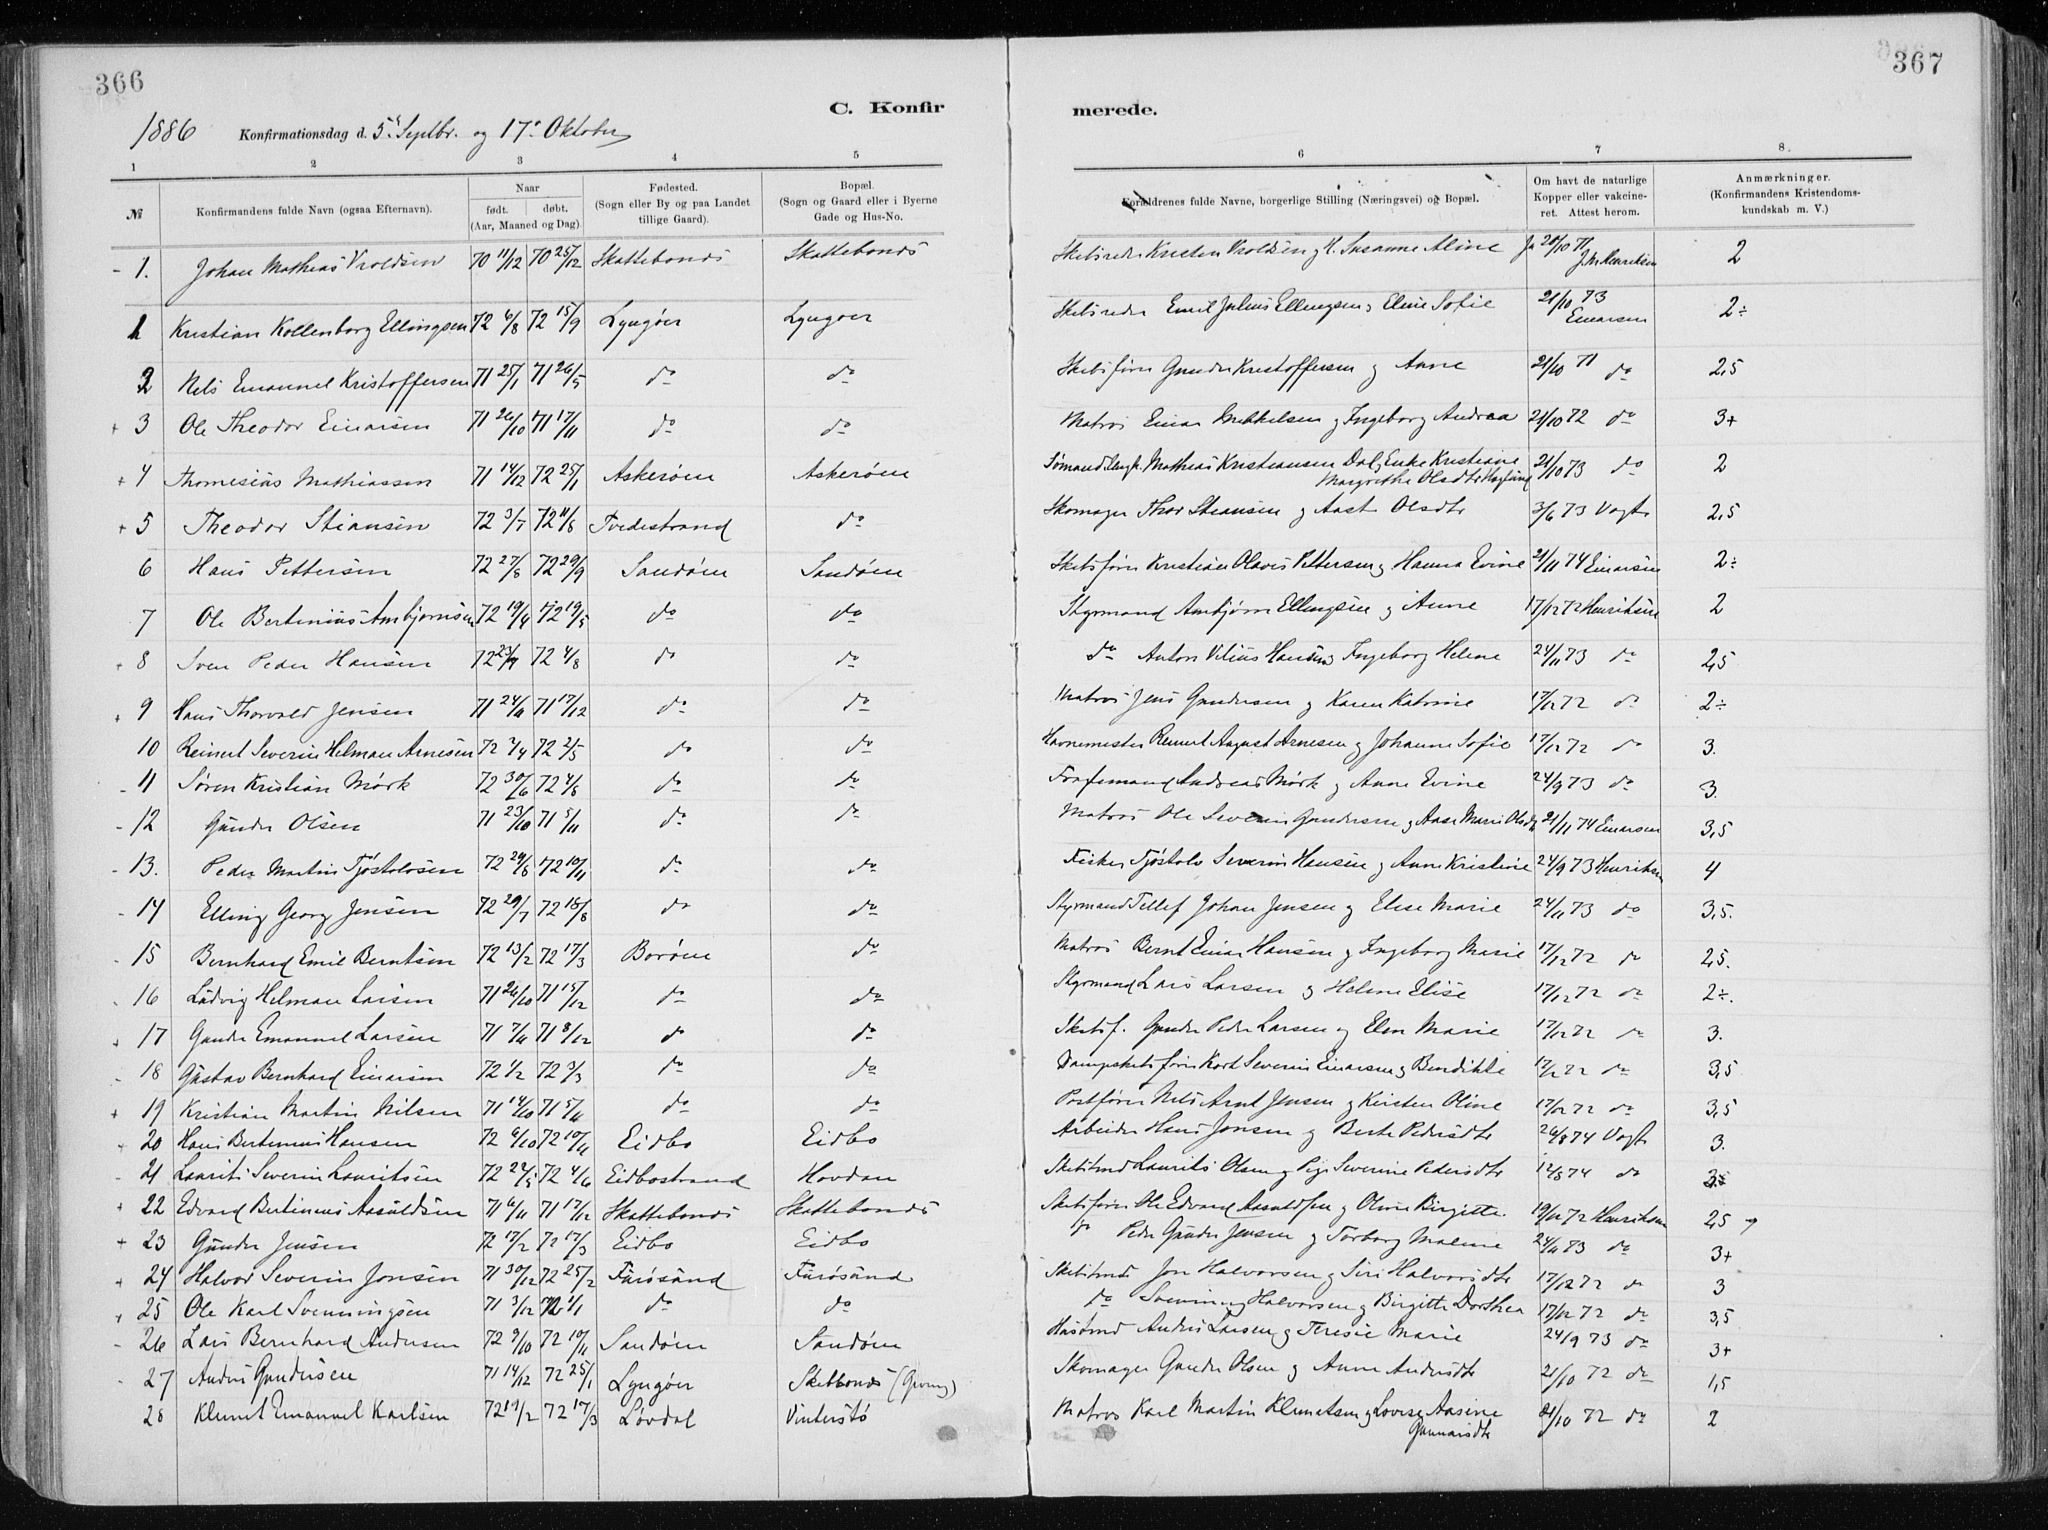 366
367
C. Konfir
merede.
1886 Konfirmationsdag d. 5 Septbr. og 17 Oktober
1 2 3 4 5 6 7 8.
№ Konfirmandens fulde Navn (ogsaa Efternavn). Naar født. døbt. (Aar, Maaned og Dag) Fødested. (Sogn eller By og paa Landet tillige Gaard). Bopæl. (Sogn og Gaard eller i Byerne Gade og Hus-No. Forældrenes fulde Navne, borgerlige Stilling (Næringsvei) og Bopæl. Om havt de naturlige Kopper eller vakcineret. Attest herom. Anmærkninger. (Konfirmandens Kristendomskundskab m. V.)
- 1. Johan Mathias Vroldsen 70 11/12 70 25/12 Skattebonds Skattebonds Skibsreder Kristen Vroldsen og H. Susanne Aline Ja 20/10 71 J. M. Henriksen 2
1 Kristian Kollenborg Ellingsen 72 6/8 72 15/9 Lyngøer Lyngoer Skibsreder Emil Julius Ellingsen og Eline Sofie 21/10 73 Einarsen 2÷
2 Nels Emanuel Kristoffersen 71 25/1 71 26/5 do do Skibsfører Gunder Kristoffersen og Anne 21/10 71 do 2,5
+ 3 Ole Theodor Einarsen 71 26/10 71 17/11 do do Matros Einar Mikkelsen og Ingeborg Andrea 21/10 72 do 3+
+ 4 Thomesius Mathiassen 71 14/12 72 25/1 Askerøen Askerøen Sømand Mathias Kristiansen Dal, Enke Kristiane Margrethe Olsdtr 21/10 73 do 2
+ 5 Theodor Stiansen 72 3/7 72 11/8 Tvedestrand do Skomager Thor Stiansen og Aast Olsdtr 3/6 73 Vogt 2,5
6 Hans Pettersen 72 27/8 72 29/9 Sandøen Sandøen Skibsfører Kristian Olavus Pettersen og Hanna Evine 21/11 74 Einarsen 2÷
7 Ole Bertinius Ambjørnsen 72 19/4 72 19/5 do do Styrmand Ambjørn Ellingsen og Anne 17/12 72 Henriksen 2
+ 8 Sven Peder Hansen 72 23/7 72 4/8 do do do Anton Vilius Hansen og Ingeborg Helene 24/11 73 do 2,5
+ 9 Hans Thorvald Jensen 71 24/11 71 17/12 do do Matros Jens Gundersen og Karen Katrine 17/12 72 do 2÷
10 Reinert Severin Helman Arnesen 72 7/4 72 2/5 do do Havnemester Reinert August Arnesen og Johanne Sofie 17/12 72 do 3.
- 11 Søren Kristian Mørk 72 30/6 72 4/8 do do Andreas Mørk og Anne Evine 24/9 73 do 3.
- 12 Gunder Olsen 71 23/10 71 5/11 do do Matros Ole Severin Gundersen og Aase Marie Olsdtr 21/11 74 Einarsen 3,5
- 13. Peder Martin Tjøstolvsen 72 29/8 72 10/11 do do Fisker Tjøstolv Severin Hansen og Anne Kristine 24/9 73 Henriksen 4
- 14 Elling Georg Jensen 72 29/7 72 18/8 do do Styrmand Tellef Johan Jensen og Elise Marie 24/11 73 do 3,5.
- 15 Bernhard Emil Berntsen 72 13/2 72 17/3 Borøen do Matros Bernt Einar Hansen og Ingeborg Marie 17/12 72 do 2,5.
- 16 Ludvig Helman Larsen 71 26/10 71 15/12 do do Styrmand Lars Larsen og Helene Elise 17/12 72 do 2÷.
+ 17 Gunder Emanuel Larsen 71 7/11 71 8/12 do do Skibsf. Gunder Peder Larsen og Elen Marie 17/12 72 do 3.
- 18 Gustav Bernhard Einarsen 72 1/2 72 3/3 do do Dampskibsfører Kort Severin Einarsen og Bendikte 17/12 72 do 3,5
+ 19 Kristian Martin Nilsen 71 14/10 71 5/11 do do Postfører Nils Arnt Jensen og Kirsten Oline 17/12 72 do 3,5
+ 20 Hans Bertinius Hansen 72 6/10 72 10/11 Eidbo Eidbo Arbeider Hans Jonsen og Berte Pedersdtr 26/8 74 Vogt 3.
- 21 Laurits Severin Lauritsen 72 24/5 72 4/6 Eidbostrand Hovdan Skibstmd Laurits Olsen og Pige Severine Pedersdtr 12/8 74 do
+ 22 Edvard Bertinius Aasuldsen 71 6/11 71 17/12 Skattebonds Skattebonds Skibsfører Ole Edvard Aasuldsen og Oline Birgitte. 19/12 72 Henriksen 2,5
+ 23 Gunder Jensen 72 17/2 72 17/3 Eidbo Eidbo do Peder Gunder Jensen og Torborg Malene 24/11 73 do 3+
+ 24 Halvor Severin Jonsen 71 30/12 72 25/2 Furøsund Furøsund Skibstmd Jon Halvorsen og Siri Halvorsdtr 17/12 72 do 3
+ 25 Ole Karl Svenningsen 71 3/12 72 1/1 do do do Svenning Halvorsen og Birgitte Dorthea 17/12 72 do 3,5
- 26 Lars Bernhard Andersen 72 9/10 72 10/11 Sandøen Sandøen Husbmd Anders Larsen og Teresie Marie 24/9 73 do 3+
- 27 Anders Gundersen 71 14/12 72 25/1 Lyngøer Skibbonds Skomager Gunder Olsen og Anne Andersdtr 21/10 72 do 1,5
28 Klemet Emanuel Karlsen 72 11/2 72 17/3 Løvdal Vinterstø Matros Karl Martin Klemetsen og Lovise Aasine Gunnarsdtr 21/10 72 do 2